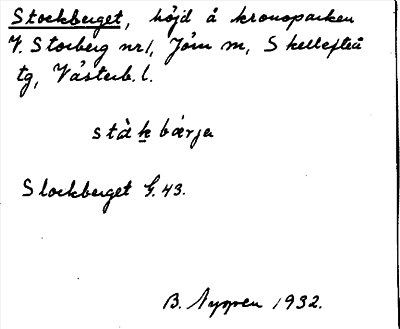 Stockberget, höjd å kronoparken
V. Storberg nr 1, Jörn sn, Skellefteå
tg, Västerb. l.
stå̀k bærjə
Stockberget G. 43.
B. 1932.